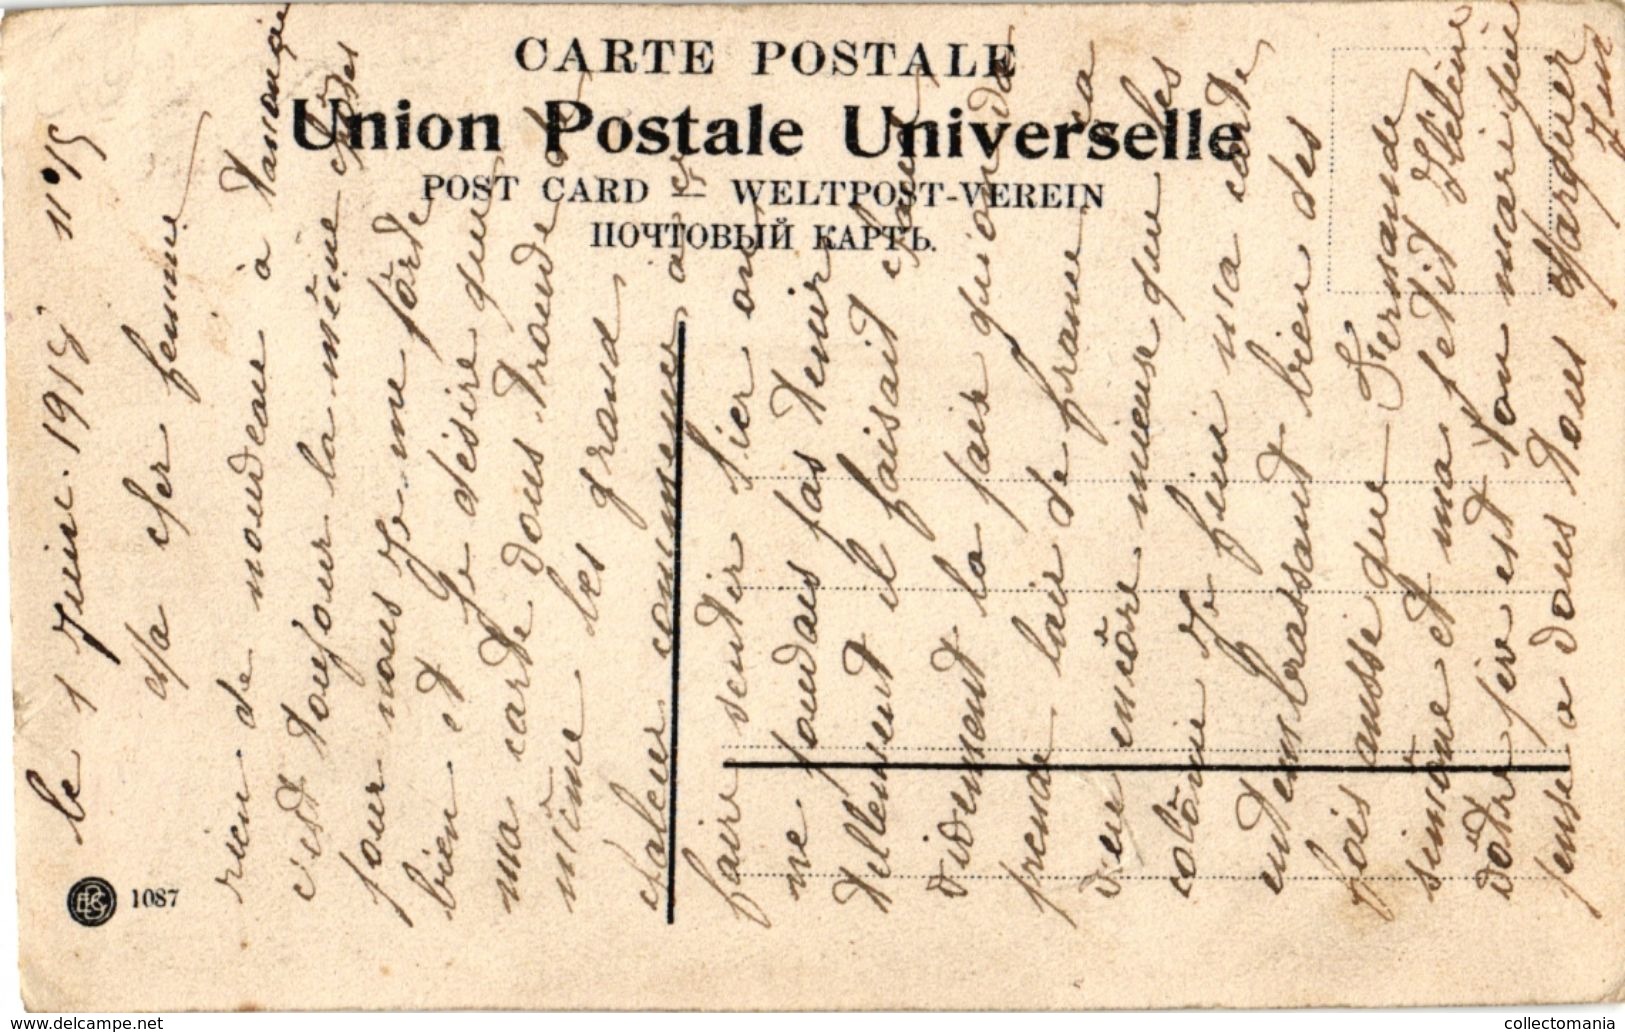 CARTE POSTALE
Union Postale Universelle
POST CARD — WELTPOST-VEREIN
ПОЧТОВЫЙ КАРТЪ.
1087
le 1 Juin 1918 n° 15
Ma cher femme
rien de nouveau à
c'est toujour la même
pour nous Je me porte
bien et Je désire que
ma carte vous trouve de
même les grand
chaleur commence a ce
faire sentir hier on
ne pouvais pas tenir
tellement il faisait chaud
vivement la paix qu'on
prende l'air de france
veu encôre mieux que les
colônie Je fini ma carte
en t'embrassant bien des
fois ausse que Fernande
simône et ma petit Heleine
vôtre père est ton mari qui
pense a vous tous
www.delcampe.net
collectomania